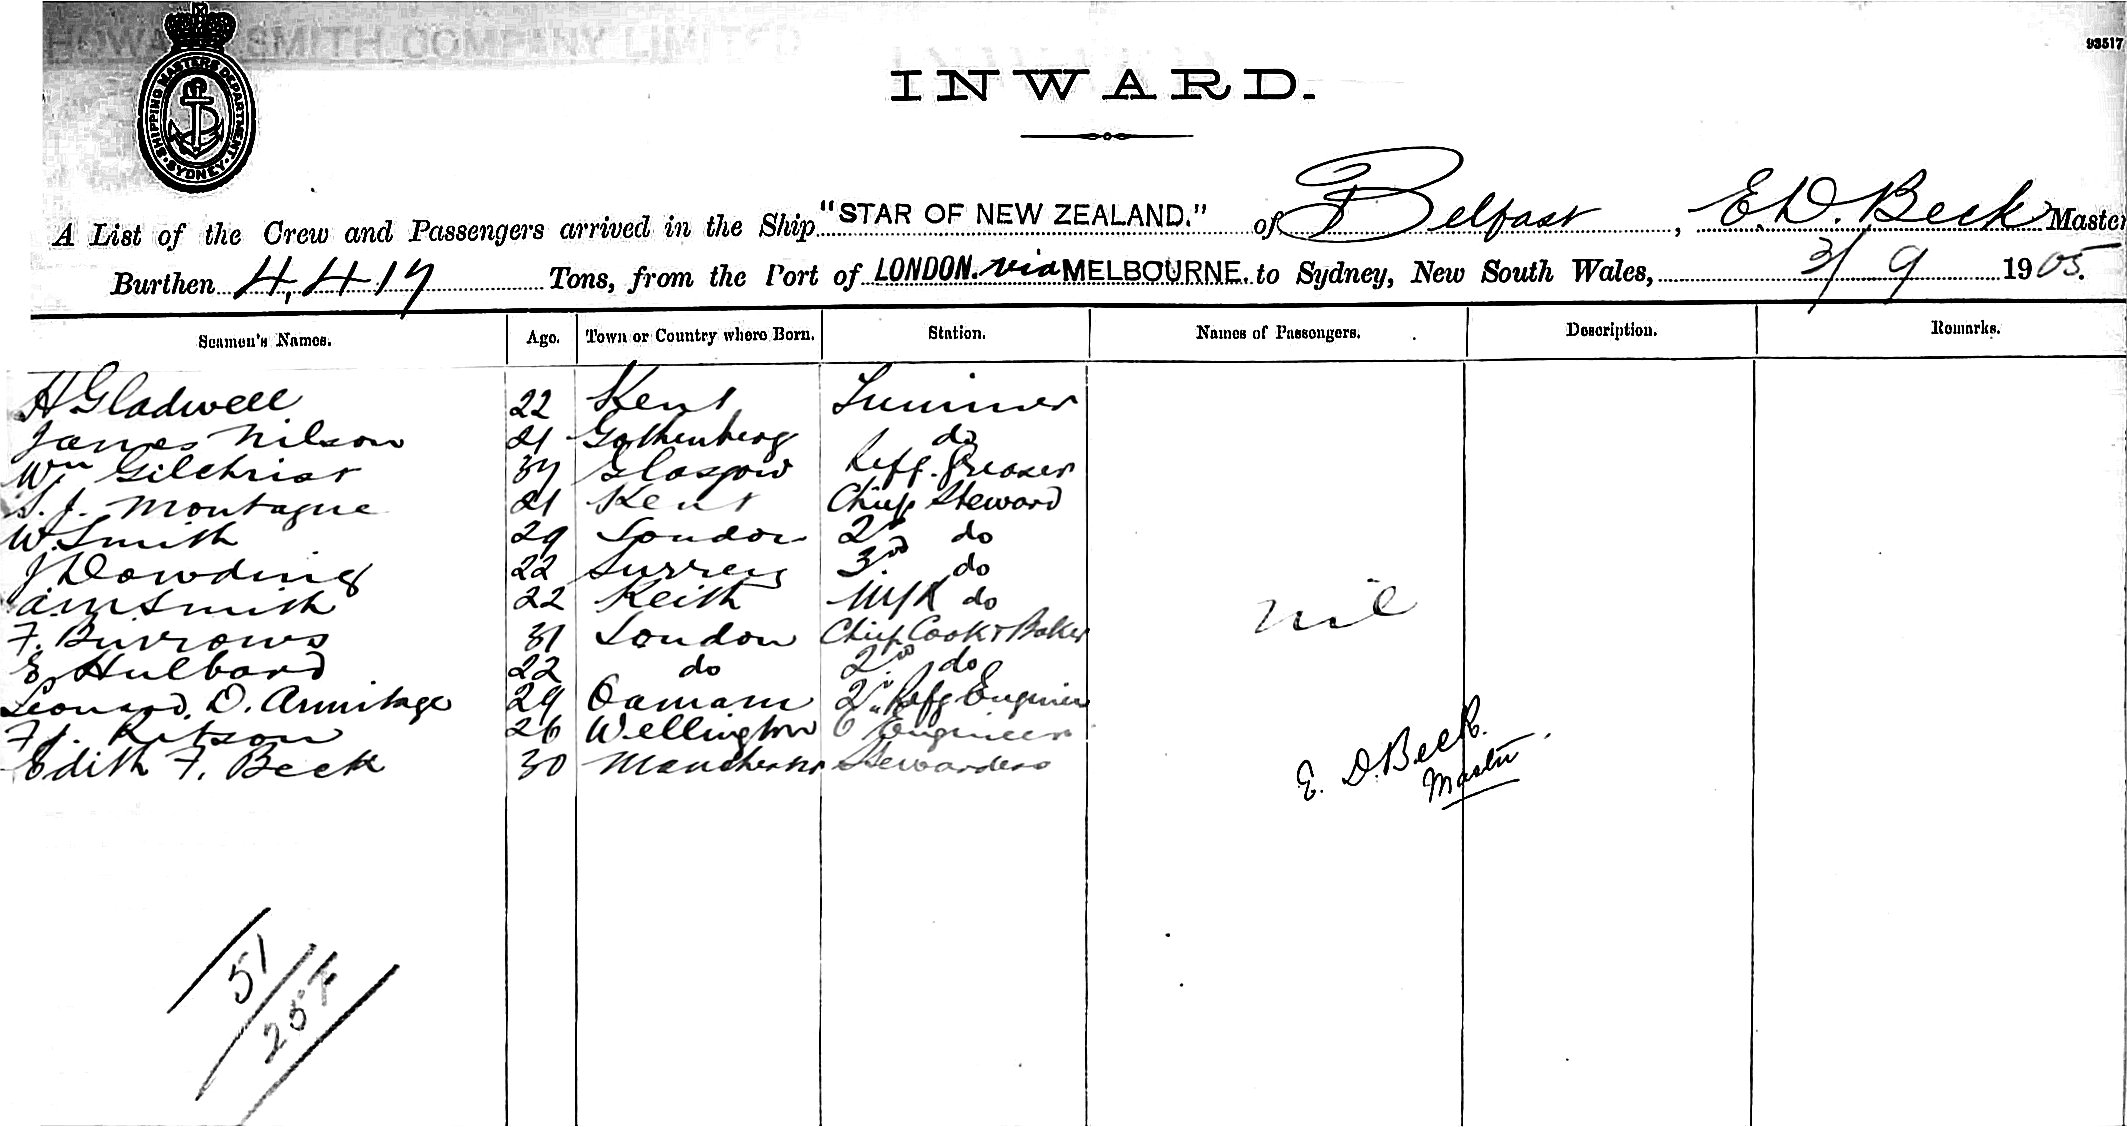 HOWARD SMITH COMPANY LIMITED
93517
SHIPPING MASTERS DEPARTMENT
SYDNEY
INWARD.
A List of the Crew and Passengers arrived in the Ship "STAR OF NEW ZEALAND." of Belfast, E.D. Beck Master
Burthen 4,417 Tons, from the Port of LONDON. via MELBOURNE. to Sydney, New South Wales, 3/9 1905.
Seamen's Names. Age. Town or Country where Born. Station. Names of Passengers. Description. Remarks.
H Gladwell 22 Kent
James Nilson 21 Gothenberg do
Wm Gilchrist 37 Glasgow Reff. Greaser
S. J. Montague 21 Kent Chief Steward
W. Smith 29 London 2nd do
J Dowding 22 Surrey 3rd do
A. M Smith 22 Keith M/R do
nil
F. Burrows 31 London Chief Cook & Baker
E Hulbard 22 do 2nd do
Leonard. D. Armitage 29 Oamaru 2nd Refg Engineer
F. J. Ritson 26 Wellington 6 Engineer
Edith F. Beck 30 Manchester Stewardess
E. D. Beck.
Master
51
25